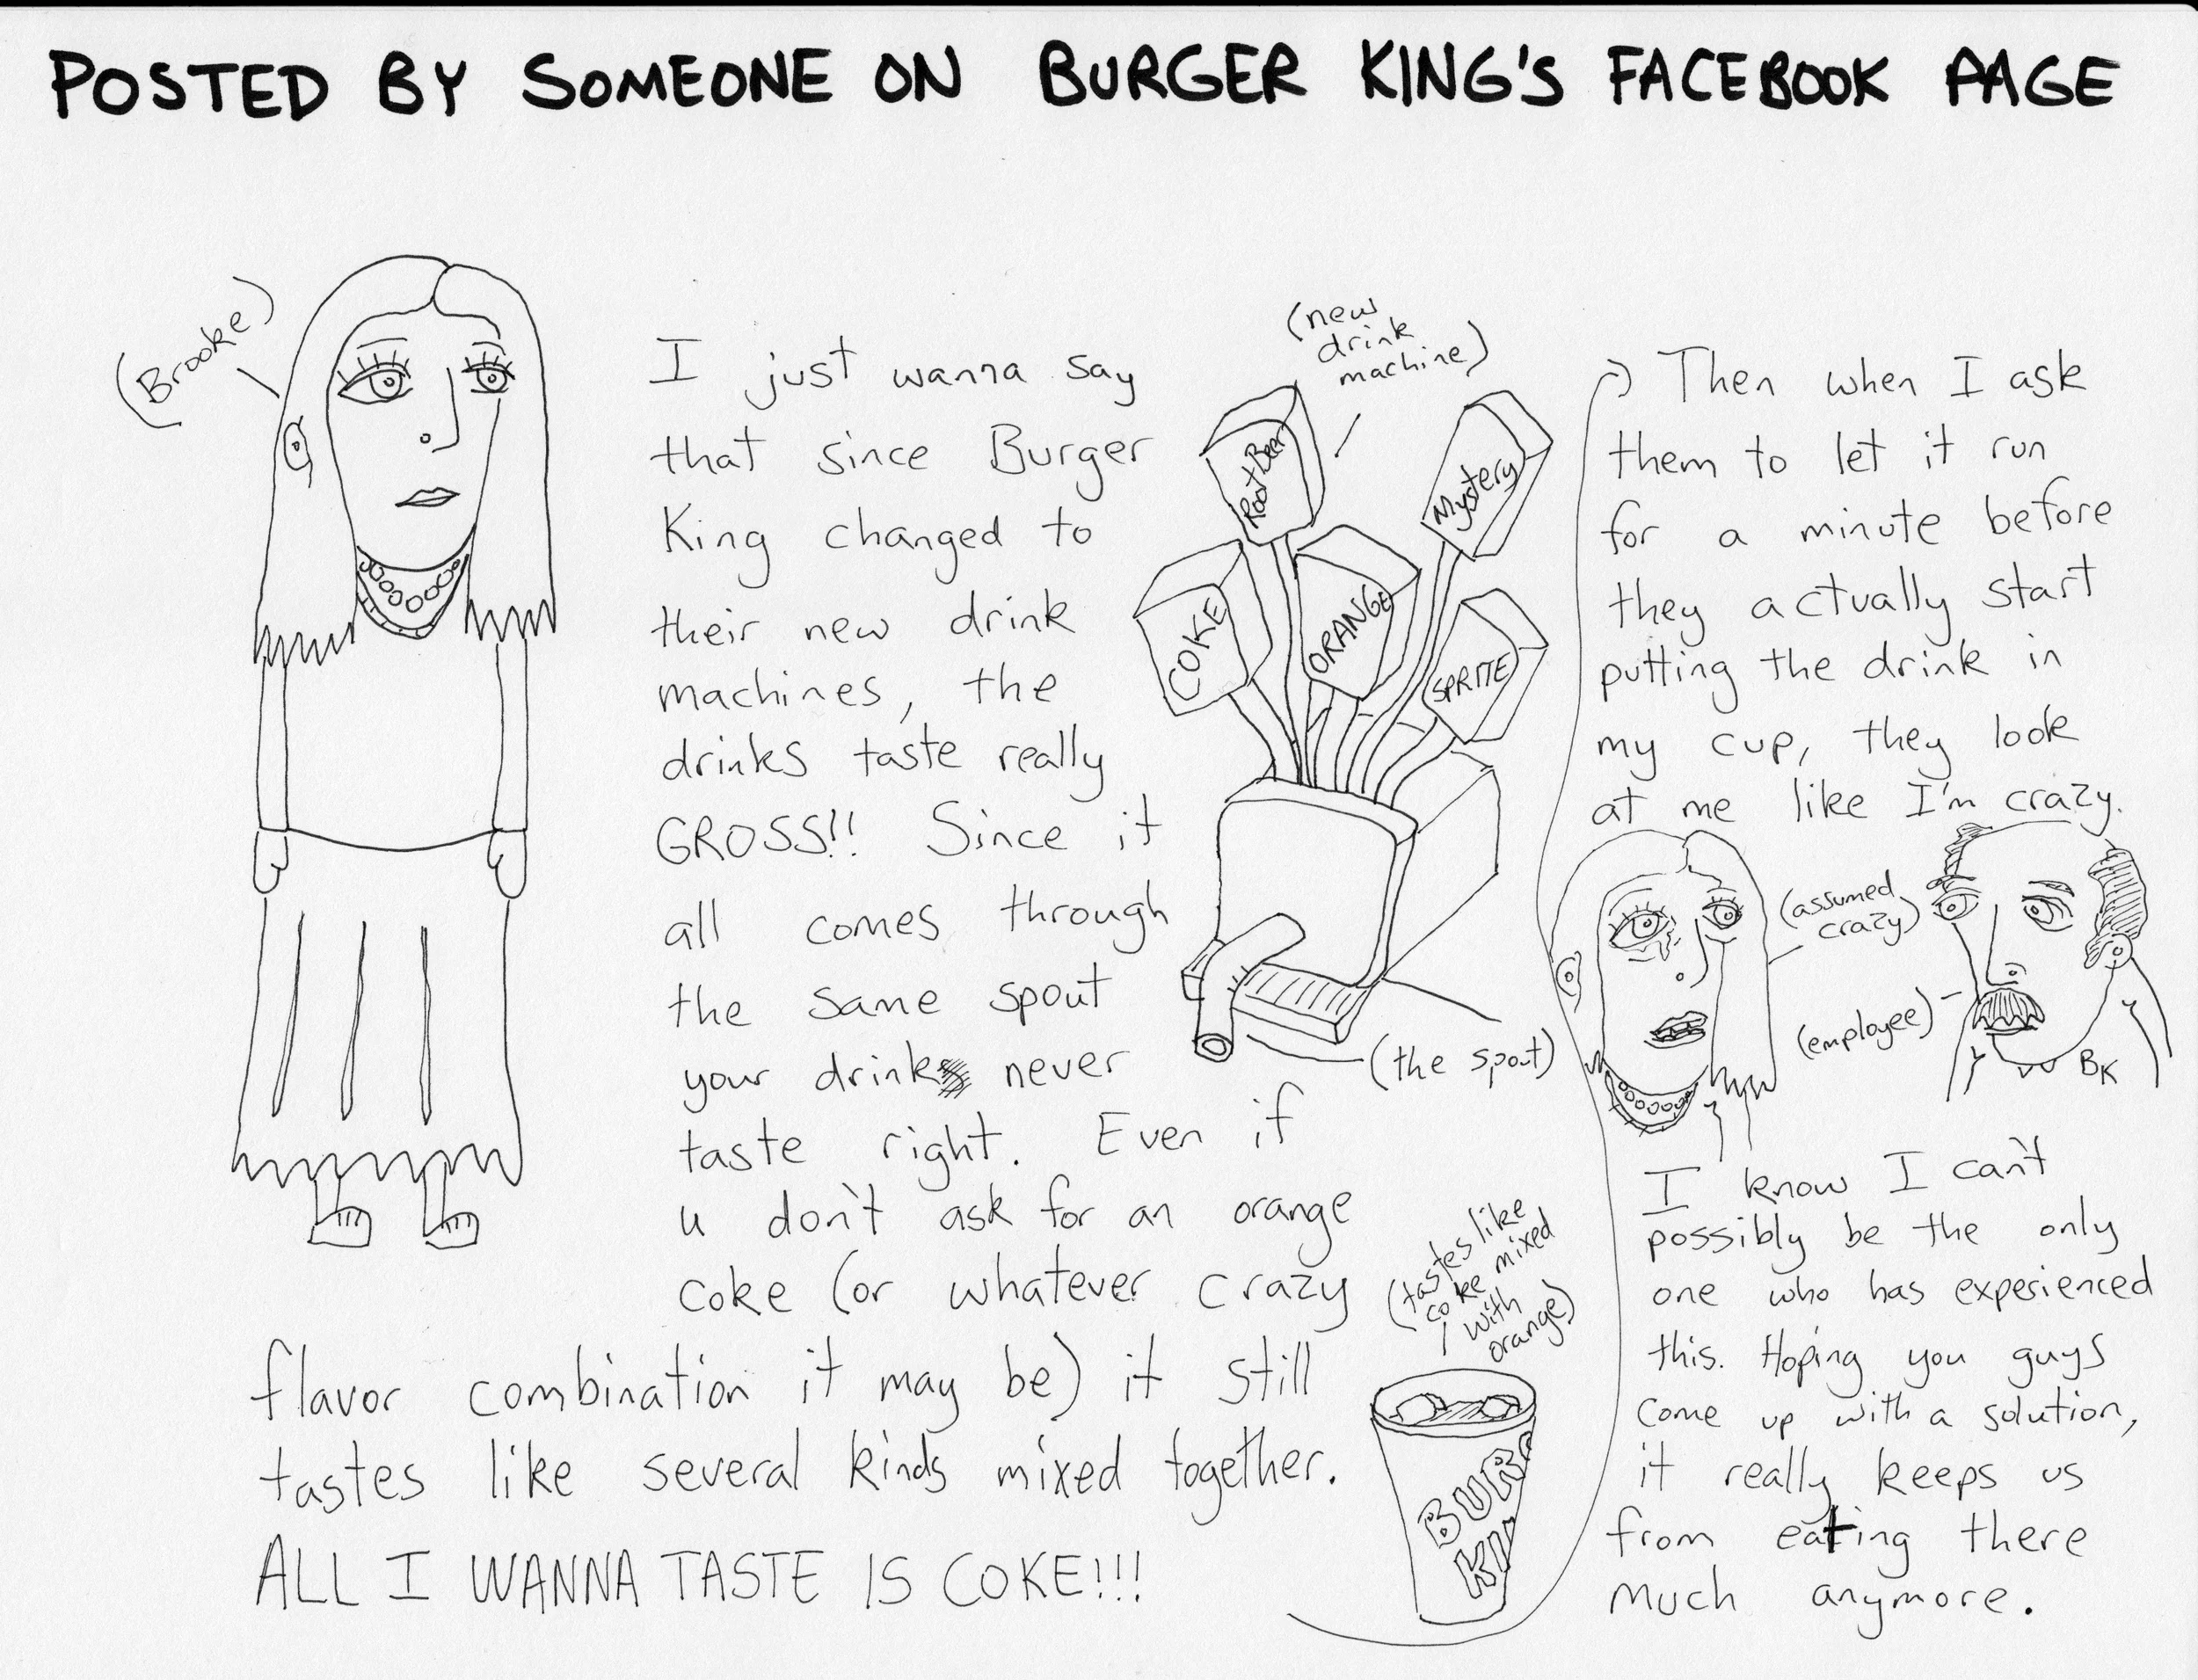 POSTED BY SOMEONE ON BURGER KING'S FACEBOOK PAGE
(Brooke)
I just wanna say
that since Burger
King changed to
their new drink
machines, the
drinks taste really
GROSS!! Since it
all comes through
the same spout
your drink never
taste right. Even if
u don't ask for an orange
coke (or whatever crazy
flavor combination it may be) it still
tastes like several kinds mixed together.
ALL I WANNA TASTE IS COKE!!!
(new
drink
machine)
Root Beer
Mystery
COKE
ORANGE
SPRITE
(the spout)
(tastes like
coke mixed
with
orange)
BURG
KIN
Then when I ask
them to let it run
for a minute before
they actually start
putting the drink in
my cup, they look
at me like I'm crazy.
(assumed
crazy)
(employee)
BK
I know I can't
possibly be the only
one who has experienced
this. Hoping you guys
come up with a solution,
it really keeps us
from eating there
much anymore.